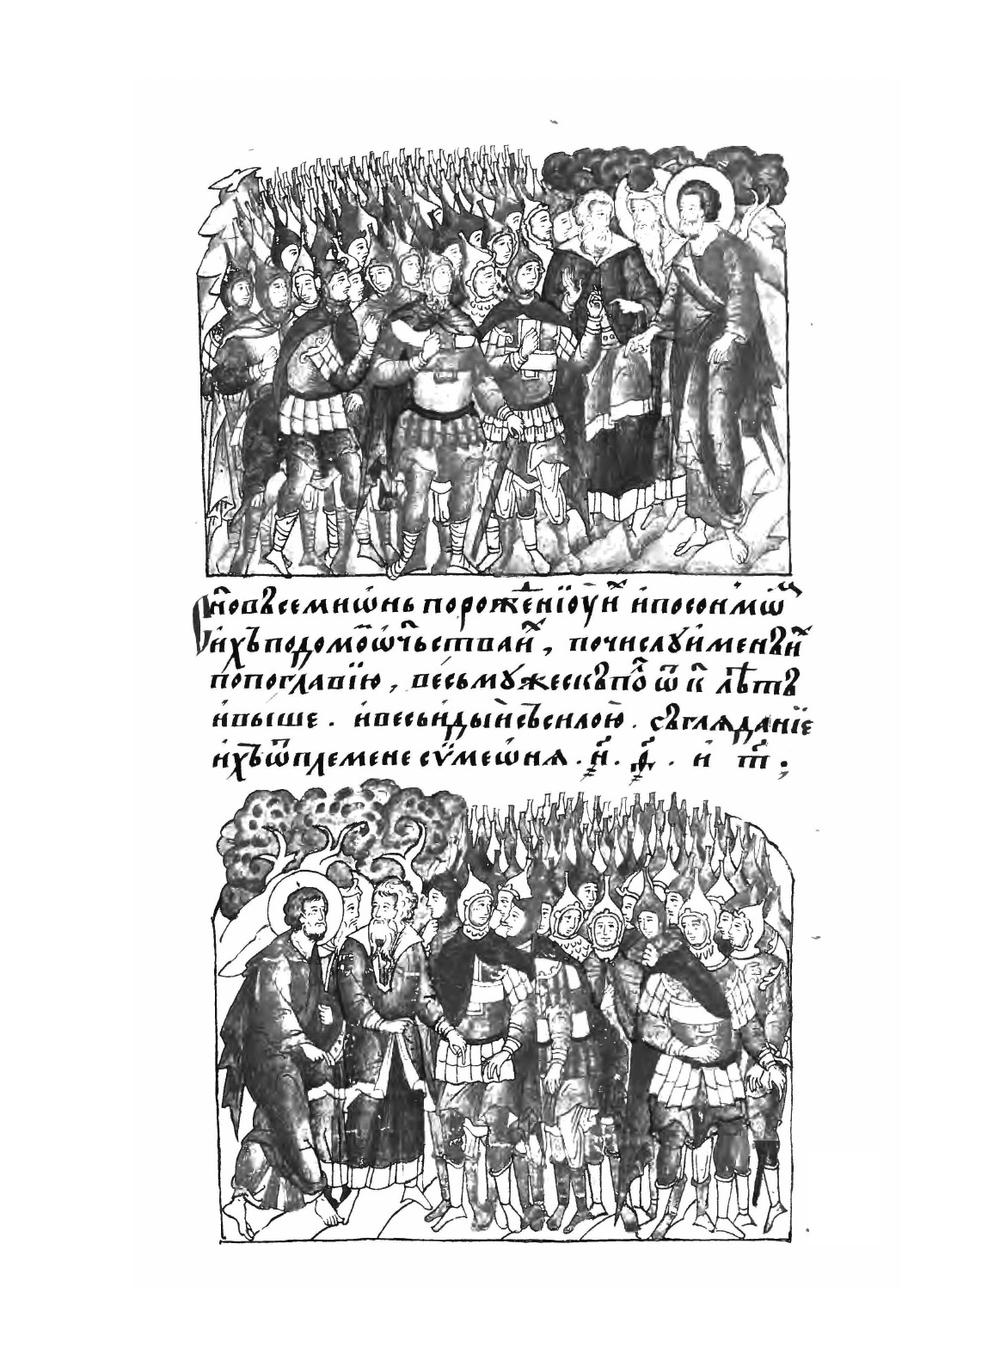 Сн҃овъ семиѡнь порожⷣенїю и҆ⷯ и҆посонмѡⷨ
и҆хъ подомоⷨ ѡⷱ҇ьства и҆ⷯ , почислу и҆менъ и҆ⷯ
попоглавїю , весь мужескъ поⷧ ѿ к҃ лѣтъ
и҆выше . и҆весь и҆ды́и съсилою . съгляданїе
и҆хъ ѿплемене сѷмеѡ́ня . н҃ . ҂ѳ҃ . и҆ т҃ :